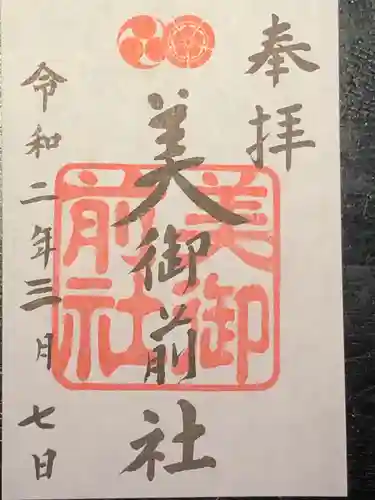 奉拝
美御前社
美御
前社
令和二年三月七日